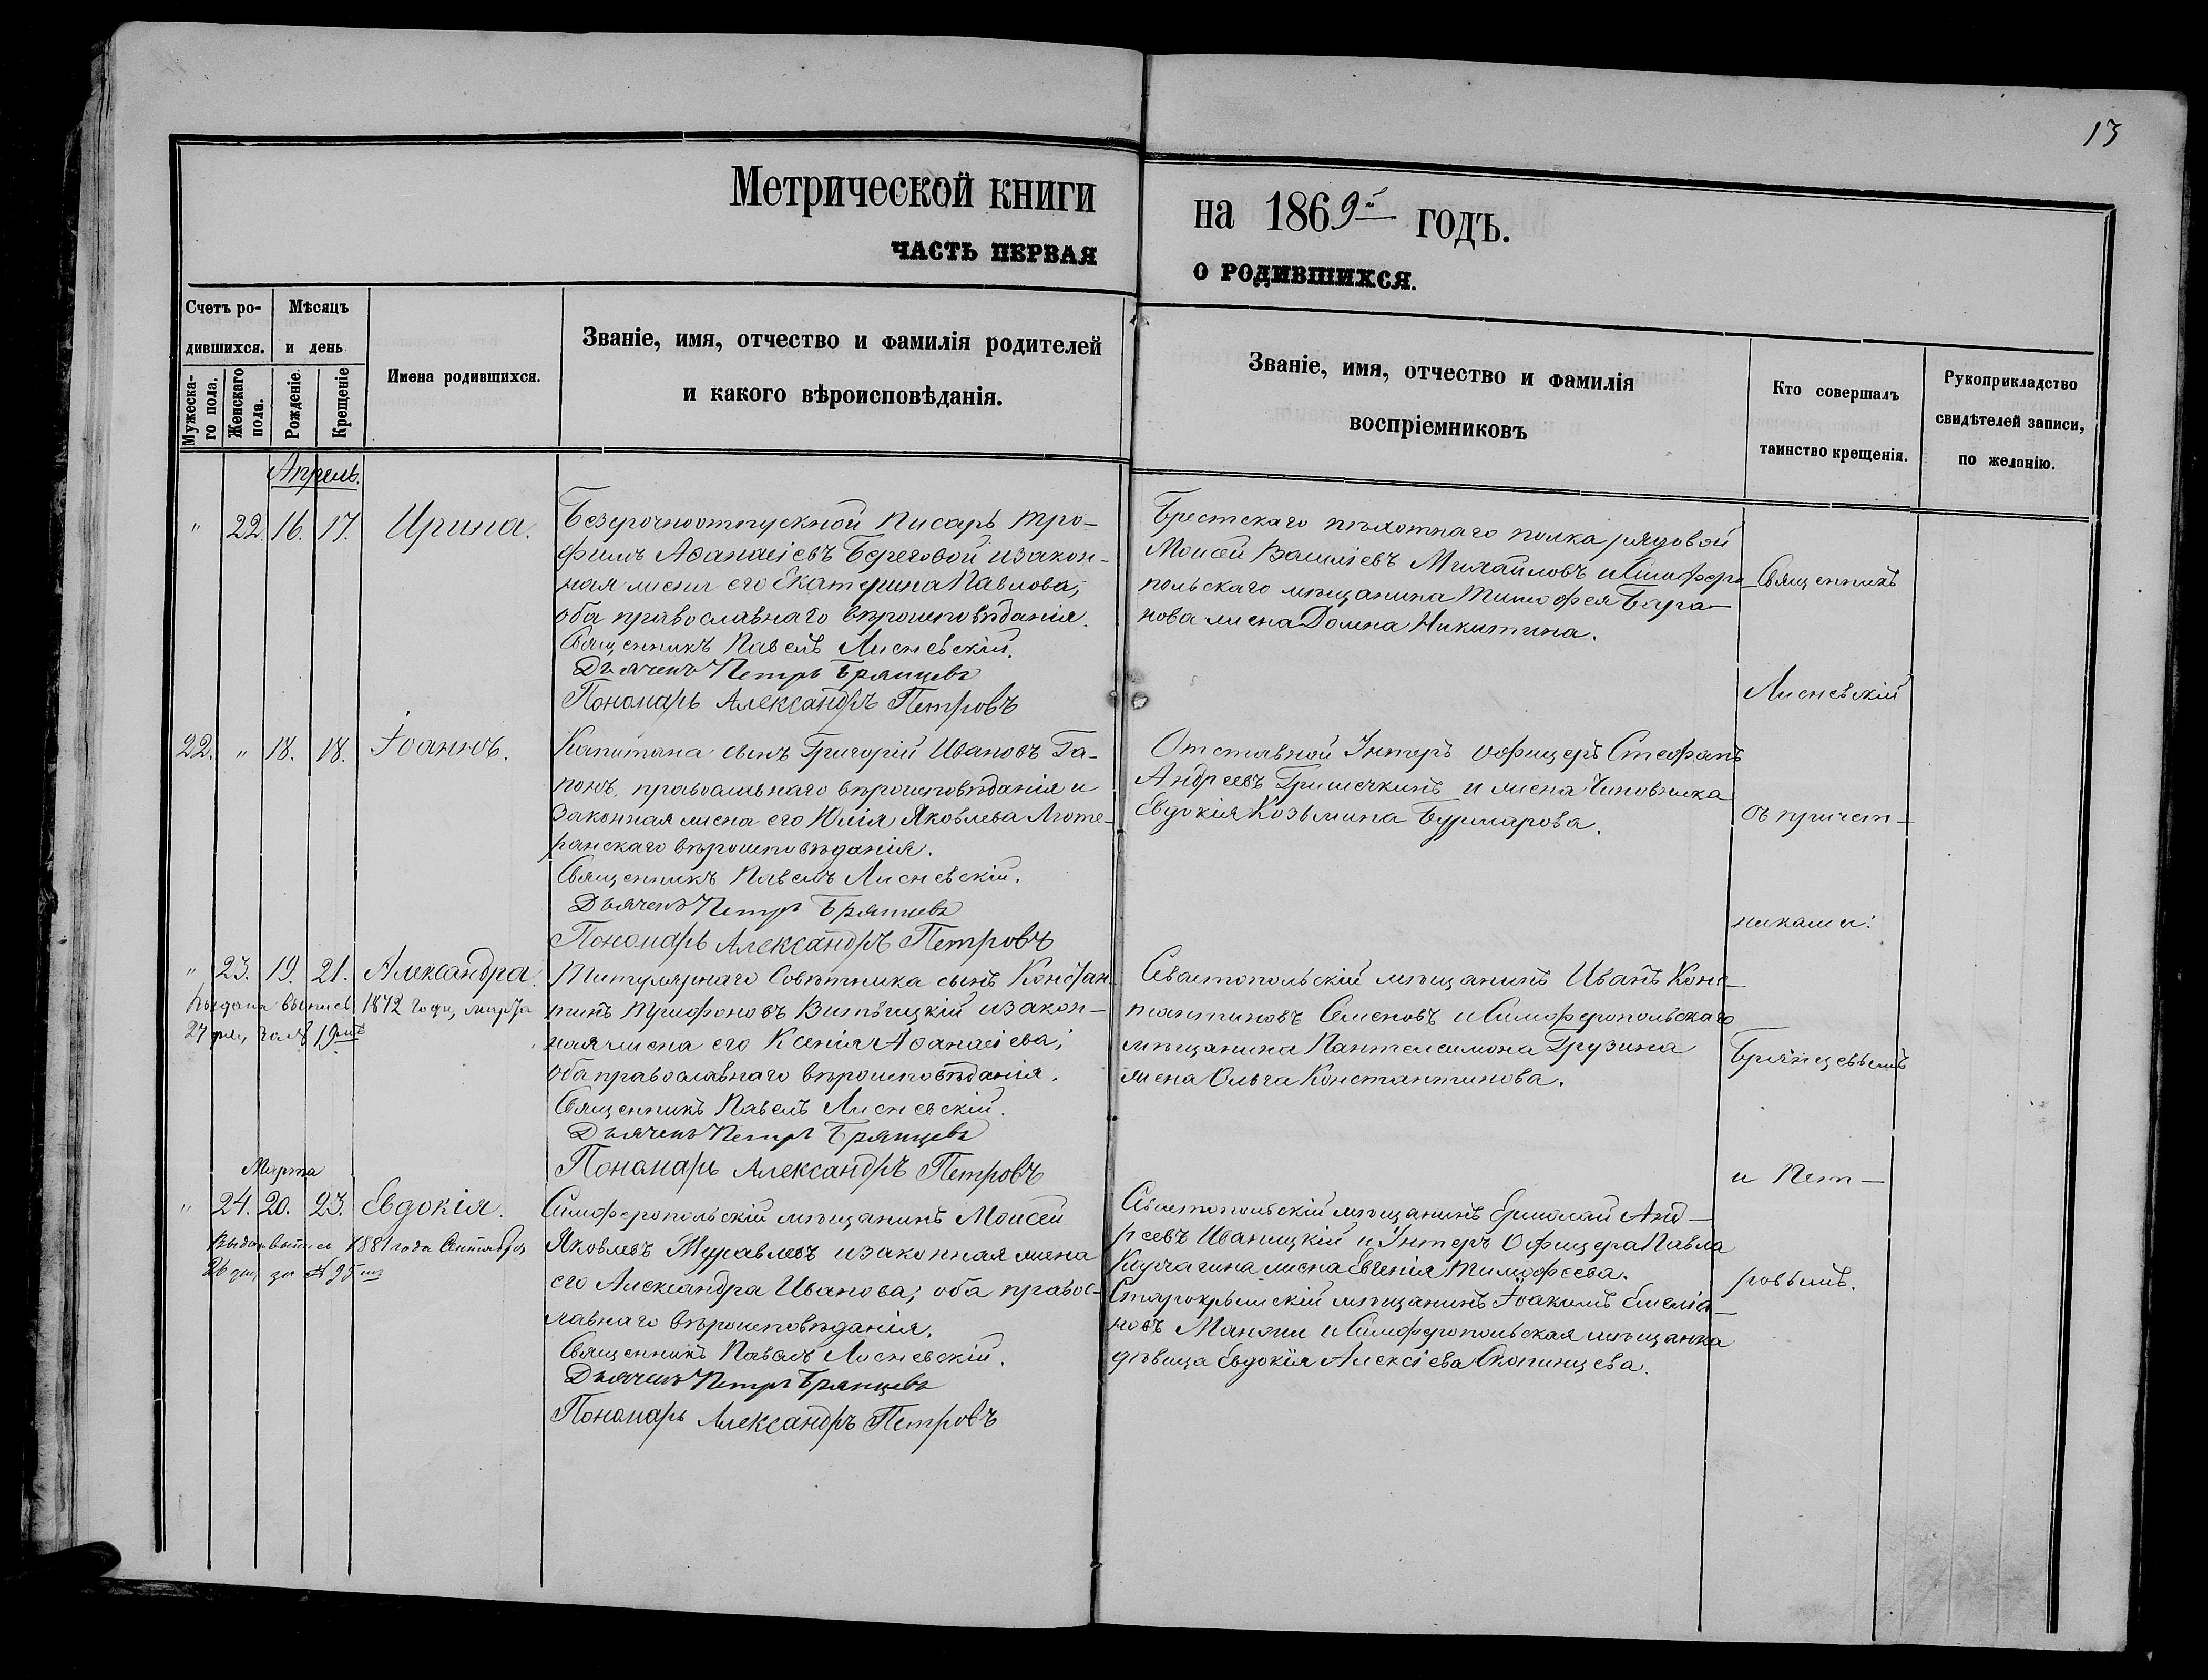 13
Метрической книги на 1869й годъ.
ЧАСТЬ ПЕРВАЯ О РОДИВШИХСЯ.
Счетъ ро-
дившихся.
Мѣсяцъ
и день
Мужеска-
го пола.
Женскаго
пола.
Рожденіе.
Крещеніе
Имена родившихся.
Званіе, имя, отчество и фамилія родителей
и какого вѣроисповѣданія.
Званіе, имя, отчество и фамилія
воспріемниковъ
Кто совершалъ
таинство крещенія.
Рукоприкладство
свидѣтелей записи,
по желанію.
Апрель.
" 22. 16. 17. Ирина.
Безсрочноотпускной Писарь Тро-
фимъ Аѳанасіевъ Береговой и закон-
ная жена его Екатерина Павлова;
оба православнаго вѣроисповѣданія.
Священникъ Павелъ Лисневскій.
Дьячекъ Петръ Брянцевъ
Пономарь Александръ Петровъ
Брестскаго пѣхотнаго полка рядовой
Моисей Василіевъ Михайловъ и Симферо-
польскаго мѣщанина Тимофея Бара-
нова жена Домна Никитина.
Священникъ
Лисневскій
22. " 18. 18. Іоаннъ.
Капитана сынъ Григорій Ивановъ Га-
понъ, православнаго вѣроисповѣданія и
законная жена его Юлія Яковлева Люте-
ранскаго вѣроисповѣданія.
Священникъ Павелъ Лисневскій.
Дьячекъ Петръ Брянцевъ
Пономарь Александръ Петровъ
Отставной Унтеръ Офицеръ Стефанъ
Андреевъ Гришечкинъ и жена Чиновника
Евдокія Козьмина Бурнарова.
съ причет-
никами:
" 23. 19. 21. Александра.
Выдана выпись 1872 года, марта
27 дня, за № 19мъ
Титулярнаго Совѣтника сынъ Констан-
тинъ Труфоновъ Витвицкій и закон-
ная жена его Ксенія Аѳанасіева;
оба православнаго вѣроисповѣданія.
Священникъ Павелъ Лисневскій.
Дьячекъ Петръ Брянцевъ
Пономарь Александръ Петровъ
Севастопольскій мѣщанинъ Иванъ Конс-
тантиновъ Семеновъ и Симферопольскаго
мѣщанина Пантелеимона Грузина
жена Ольга Константинова.
Брянцевымъ
и Пет-
Марта
" 24. 20. 23. Евдокія.
Выдана выпись 1881 года Сентября
26 дня за № 95мъ
Симферопольскій мѣщанинъ Моисей
Яковлевъ Журавлевъ и законная жена
его Александра Иванова; оба правос-
лавнаго вѣроисповѣданія.
Священникъ Павелъ Лисневскій.
Дьячекъ Петръ Брянцевъ
Пономарь Александръ Петровъ
Севастопольскій мѣщанинъ Ермолай Анд-
реевъ Иваницкій и Унтеръ Офицера Павла
Кулчагина жена Евгенія Тимофеева.
Старокрымскій мѣщанинъ Іоакимъ Емеліа-
новъ и Симферопольская мѣщанка
дѣвица Евдокія Алексіева Скопинцева.
ровымъ.